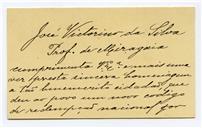 José Victorino da Silva
Prof. de Miragaia
cumprimenta V. Ex.ª e mais uma
vez presta sincera homenagem
a tão benemerito cidadão que
deu ao povo um novo codigo
de redempção nacional por